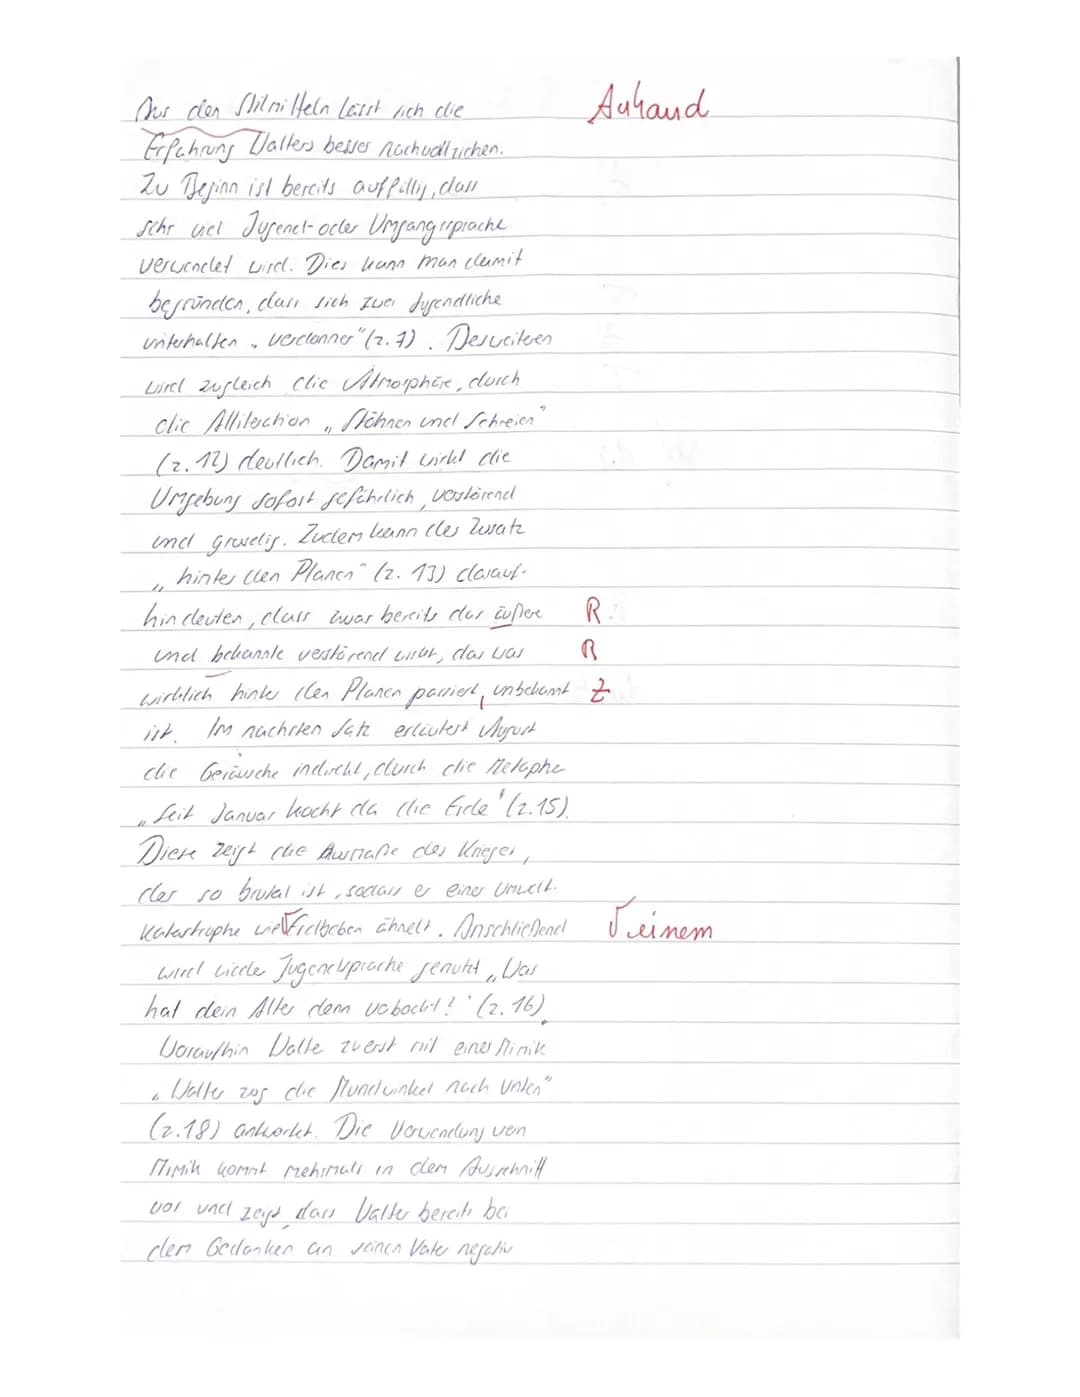 Aus den Stilmitteln lässt sich die Anhand
Erfahrung Walters besser nachvollziehen.
Zu Beginn ist bereits auffällig, dass
sehr viel Jugend- oder Umgangssprache
verwendet wird. Dies kann man damit
begründen, dass sich zwei Jugendliche
unterhalten „ verdonner" (Z. 7). Desweiteren
wird zugleich die Atmosphäre, durch
die Alliteration „ Stöhnen und Schreien"
(Z. 12) deutlich. Damit wirkt die
Umgebung sofort gefährlich, verstörend
und gruselig. Zudem kann der Zusatz
„ hinter den Planen" (Z. 13) darauf-
hindeuten, dass zwar bereits das äußere R
und bekannte verstörend wirkt, das was R
wirklich hinter den Planen passiert, unbekannt Z
ist. Im nächsten Satz erläutert August
die Geräusche indirekt, durch die Metapher
„ Seit Januar kocht da die Erde" (Z. 15).
Diese zeigt die Ausmaße des Krieges,
der so brutal ist, sodass er einer Umwelt-
katastrophe wie Erdbeben ähnelt. Anschließend √ einem
wird wieder Jugendsprache genutzt „ Was
hat dein Alter denn verbockt?" (Z. 16).
Woraufhin Walter zuerst mit einer Mimik
„ Walter zog die Mundwinkel nach unten"
(Z. 18) antwortet. Die Verwendung von
Mimik kommt mehrmals in dem Ausschnitt
vor und zeigt, dass Walter bereits bei
dem Gedanken an seinen Vater negativ